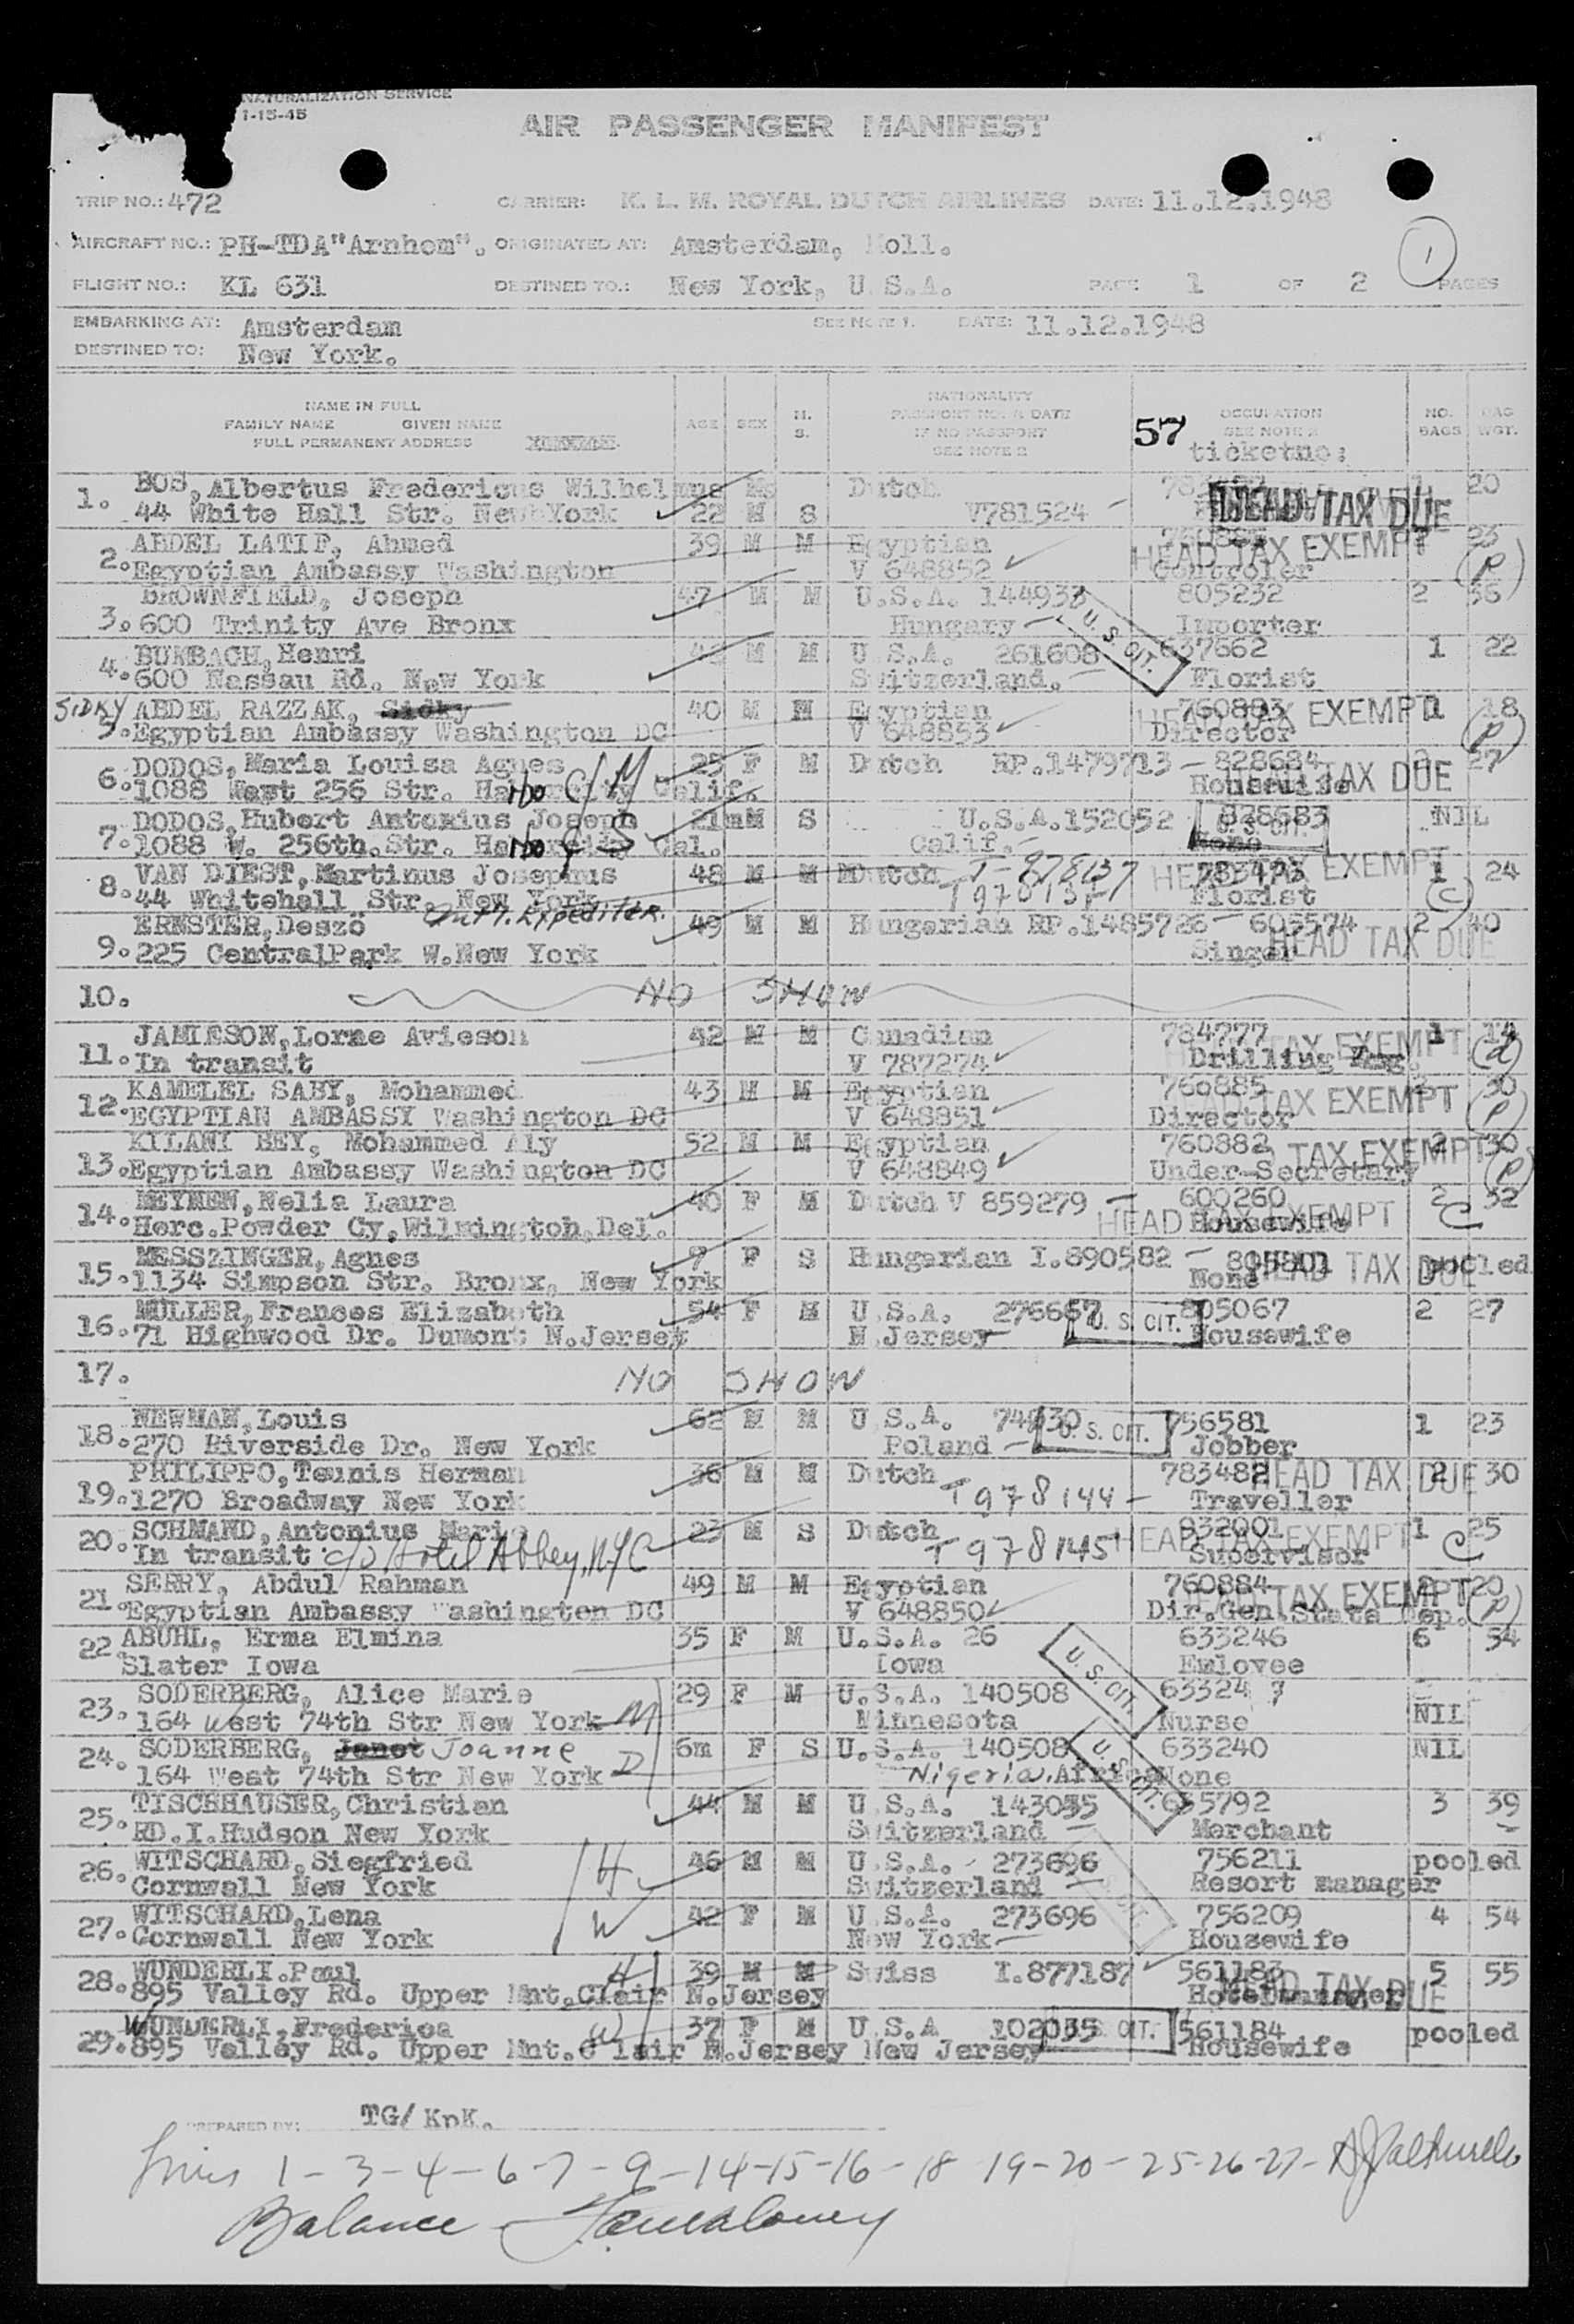 NATURALIZATION SERVICE
1-15-45
AIR PASSENGER MANIFEST
TRIP NO.: 472 CARRIER: K. L. M. ROYAL DUTCH AIRLINES DATE: 11.12.1948
AIRCRAFT NO.: PH-TDA "Arnhem". ORIGINATED AT: Amsterdam, Holl. 1
FLIGHT NO.: KL 631 DESTINED TO.: New York, U.S.A. PAGE 1 OF 2 PAGES
EMBARKING AT: Amsterdam SEE NOTE 1. DATE: 11.12.1948
DESTINED TO: New York.
NAME IN FULL
FAMILY NAME GIVEN NAME
FULL PERMANENT ADDRESS
AGE SEX M. S.
NATIONALITY
PASSPORT NO. & DATE
IF NO PASSPORT
SEE NOTE 2
57 OCCUPATION
SEE NOTE 2
ticketno:
NO. BAGS BAG WGT.
1. BOS, Albertus Fredericus Wilhelmus Dutch 20
44 White Hall Str. New York 22 M S V781524 HEAD TAX DUE
2. ABDEL LATIF, Ahmed 39 M M Egyptian 23
Egyptian Ambassy Washington V 648852 Controler HEAD TAX EXEMPT (P)
3. BROWNFIELD, Joseph 47 M M U.S.A. 144933 805232 2 36
600 Trinity Ave Bronx Hungary Importer U. S. CIT.
4. BUMBACH, Henri M M U.S.A. 261608 637662 1 22
600 Nassau Rd. New York Switzerland. Florist
SIDKY 5. ABDEL RAZZAK, Sidky 40 M M Egyptian 760883 1 18
Egyptian Ambassy Washington DC V 648853 Director HEAD TAX EXEMPT (P)
6. DODOS, Maria Louisa Agnes 25 F M Dutch RP.1479713 828684 27
1088 West 256 Str. Harborcity Calif. Housewife HEAD TAX DUE
7. DODOS, Hubert Antonius Joseph 21m M S U.S.A.152052 828683 NIL
1088 W. 256th.Str. Harborcity Cal. Calif. None U. S. CIT.
8. VAN DIEST, Martinus Josephus 48 M M Dutch T-978137 783473 1 24
44 Whitehall Str. New York T978137 Florist HEAD TAX EXEMPT (C)
9. ERNSTER, Deszö 49 M M Hungarian RP.1485726 605574 2 40
225 CentralPark W.New York Singer HEAD TAX DUE
10. NO SHOW
11. JAMIESON, Lorne Avieson 42 M M Canadian 784777 1 14
In transit V 787274 Drilling Eng. TAX EXEMPT (2)
12. KAMELEL SABY, Mohammed 43 M M Egyptian 760885 30
EGYPTIAN AMBASSY Washington DC V 648851 Director TAX EXEMPT (P)
13. KILANI BEY, Mohammed Aly 52 M M Egyptian 760882 2 30
Egyptian Ambassy Washington DC V 648849 Under-Secretary TAX EXEMPT (P)
14. MEYNEN, Nelia Laura 40 F M Dutch V 859279 600260 2 32
Herc.Powder Cy,Wilmington,Del. Housewife HEAD TAX EXEMPT C
15. MESSZINGER, Agnes 9 F S Hungarian I.890582 805801 pooled
1134 Simpson Str. Bronx, New York None HEAD TAX DUE
16. MULLER, Frances Elizabeth 54 F M U.S.A. 276667 805067 2 27
71 Highwood Dr. Dumont N.Jersey N.Jersey U. S. CIT. Housewife
17. NO SHOW
18. NEWMAN, Louis 62 M M U.S.A. 74930 756581 1 23
270 Riverside Dr. New York Poland U. S. CIT. Jobber
19. PHILIPPO, Teunis Herman 36 M M Dutch 783482 2 30
1270 Broadway New York T978144 Traveller HEAD TAX DUE
20. SCHMAND, Antonius Maria 23 M S Dutch 832001 1 25
In transit c/o Hotel Abbey, NYC T978145 Supervisor HEAD TAX EXEMPT C
21. SERRY, Abdul Rahman 49 M M Egyptian 760884 2 20
Egyptian Ambassy Washington DC V 648850 Dir.Gen.State Dep. TAX EXEMPT (P)
22. ABUHL, Erma Elmina 35 F M U.S.A. 26 633246 6 54
Slater Iowa Iowa Emlovee
23. SODERBERG, Alice Marie 29 F M U.S.A. 140508 633247
164 West 74th Str New York M Minnesota U. S. CIT. Nurse NIL
24. SODERBERG, Janet Joanne 6m F S U.S.A. 140508 633240 NIL
164 West 74th Str New York D Nigeria.Africa None U. S. CIT.
25. TISCHHAUSER, Christian 44 M M U.S.A. 143035 635792 3 39
RD.I.Hudson New York Switzerland Merchant
26. WITSCHARD, Siegfried H 46 M M U.S.A. 273696 756211 pooled
Cornwall New York Switzerland Resort manager
27. WITSCHARD, Lena W 42 F M U.S.A. 273696 756209 4 54
Cornwall New York New York Housewife
28. WUNDERLI.Paul H 39 M M Swiss I.877187 561183 5 55
895 Valley Rd. Upper Mnt.Clair N.Jersey Hotelmanager HEAD TAX DUE
29. WUNDERLI, Frederica W 37 F M U.S.A 102035 U. S. CIT. 561184 pooled
895 Valley Rd. Upper Mnt.Clair N.Jersey New Jersey Housewife
PREPARED BY: TG/ KpK.
Lines 1-3-4-6-7-9-14-15-16-18 19-20-25-26-27-
Balance